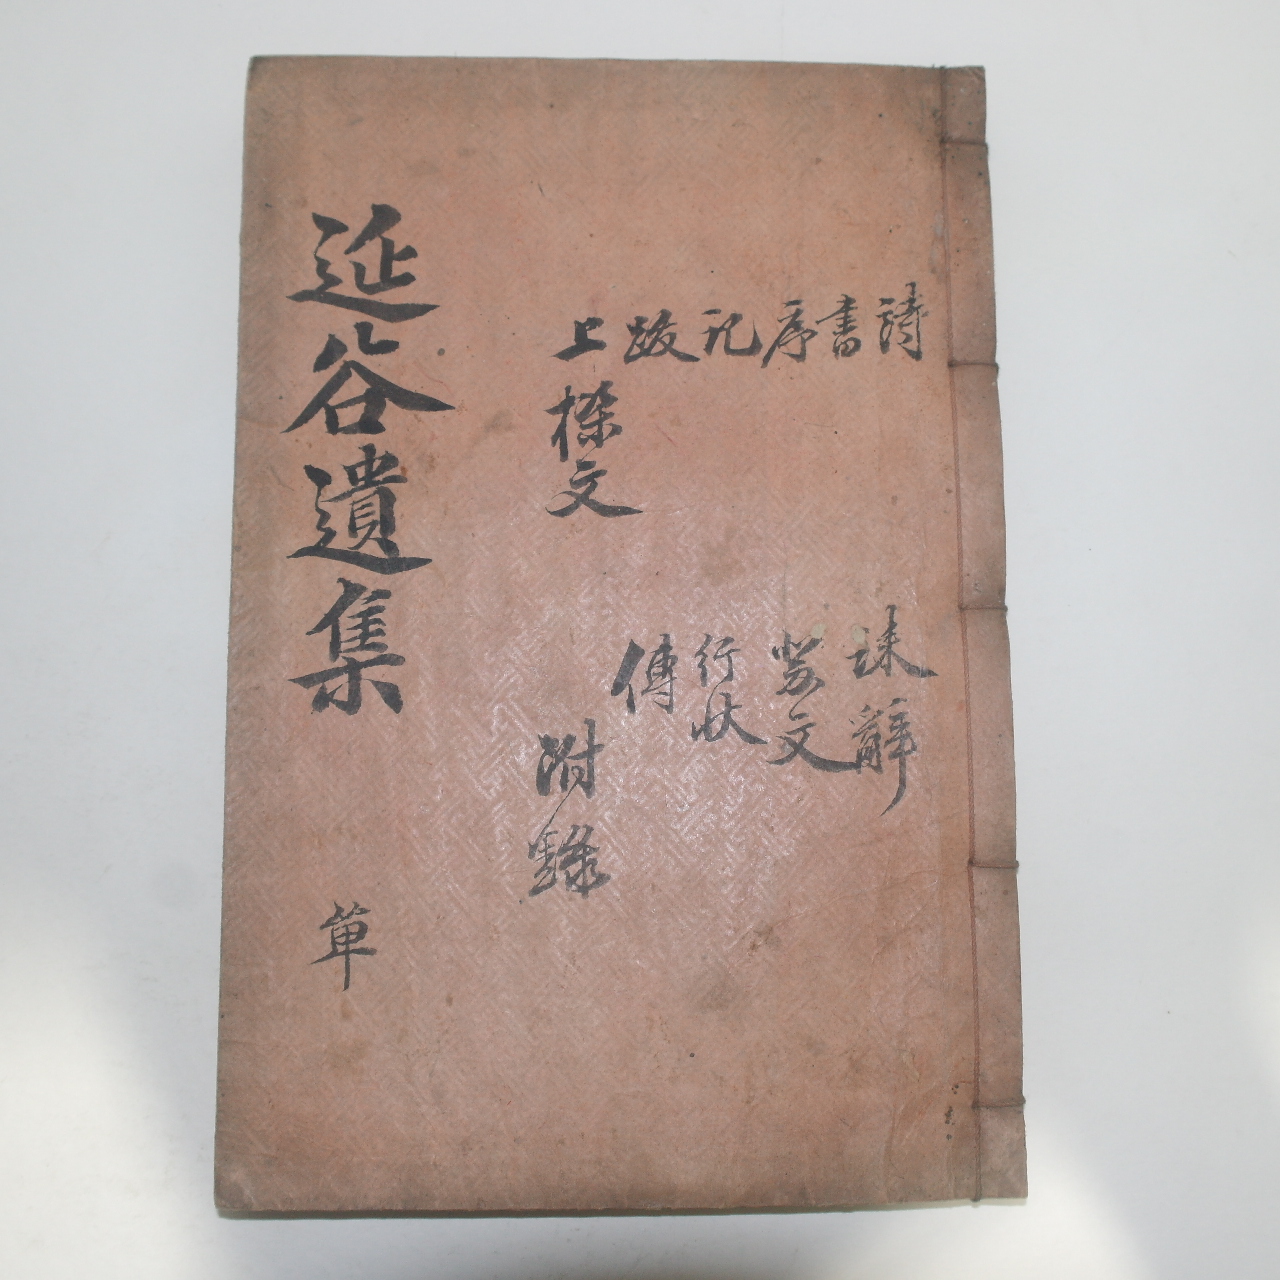 詩
書
序
記
跋
上樑文
誄辭
祭文
行狀
傳
附錄
延谷遺集
單